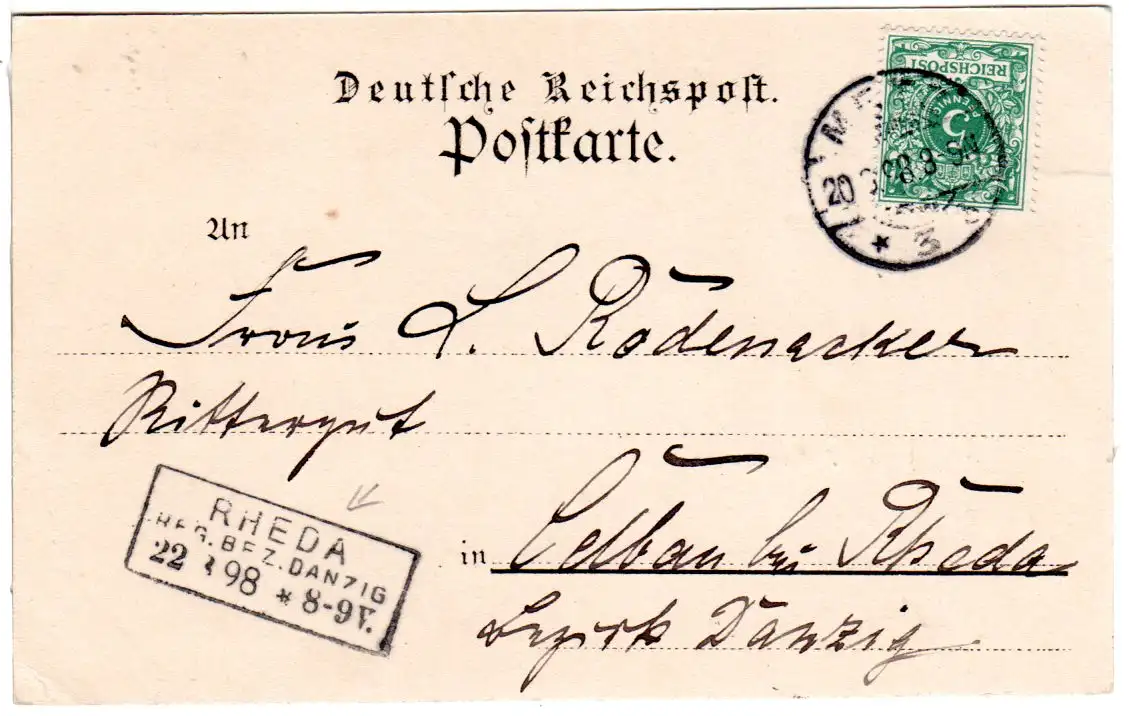 Deutsche Reichspost.
Postkarte.
REICHSPOST
5
PFENNIG
20 98. 8-9N
* 3
An
Frau L. Rodenacker
Rittergut
in Celbau bei Rheda
Bezirk Danzig
RHEDA
REG. BEZ. DANZIG
22 3 98 * 8-9V.